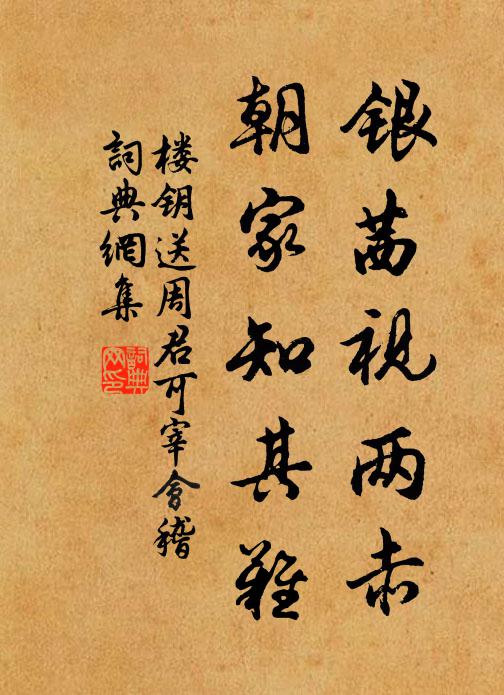 银茜视两赤
朝家知其难
楼钥送周君可宰会稽
词典網集
詞典网印